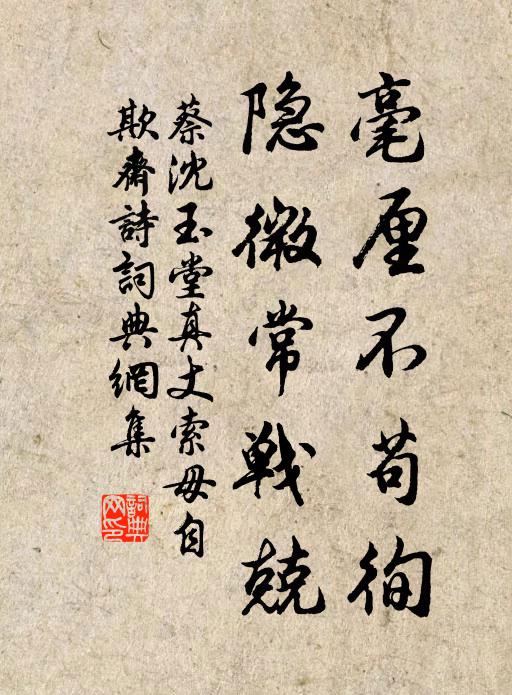 毫厘不苟徇
隐微常戰兢
蔡沈玉堂真丈索毋自
欺齋詩詞典網集
詞典網印